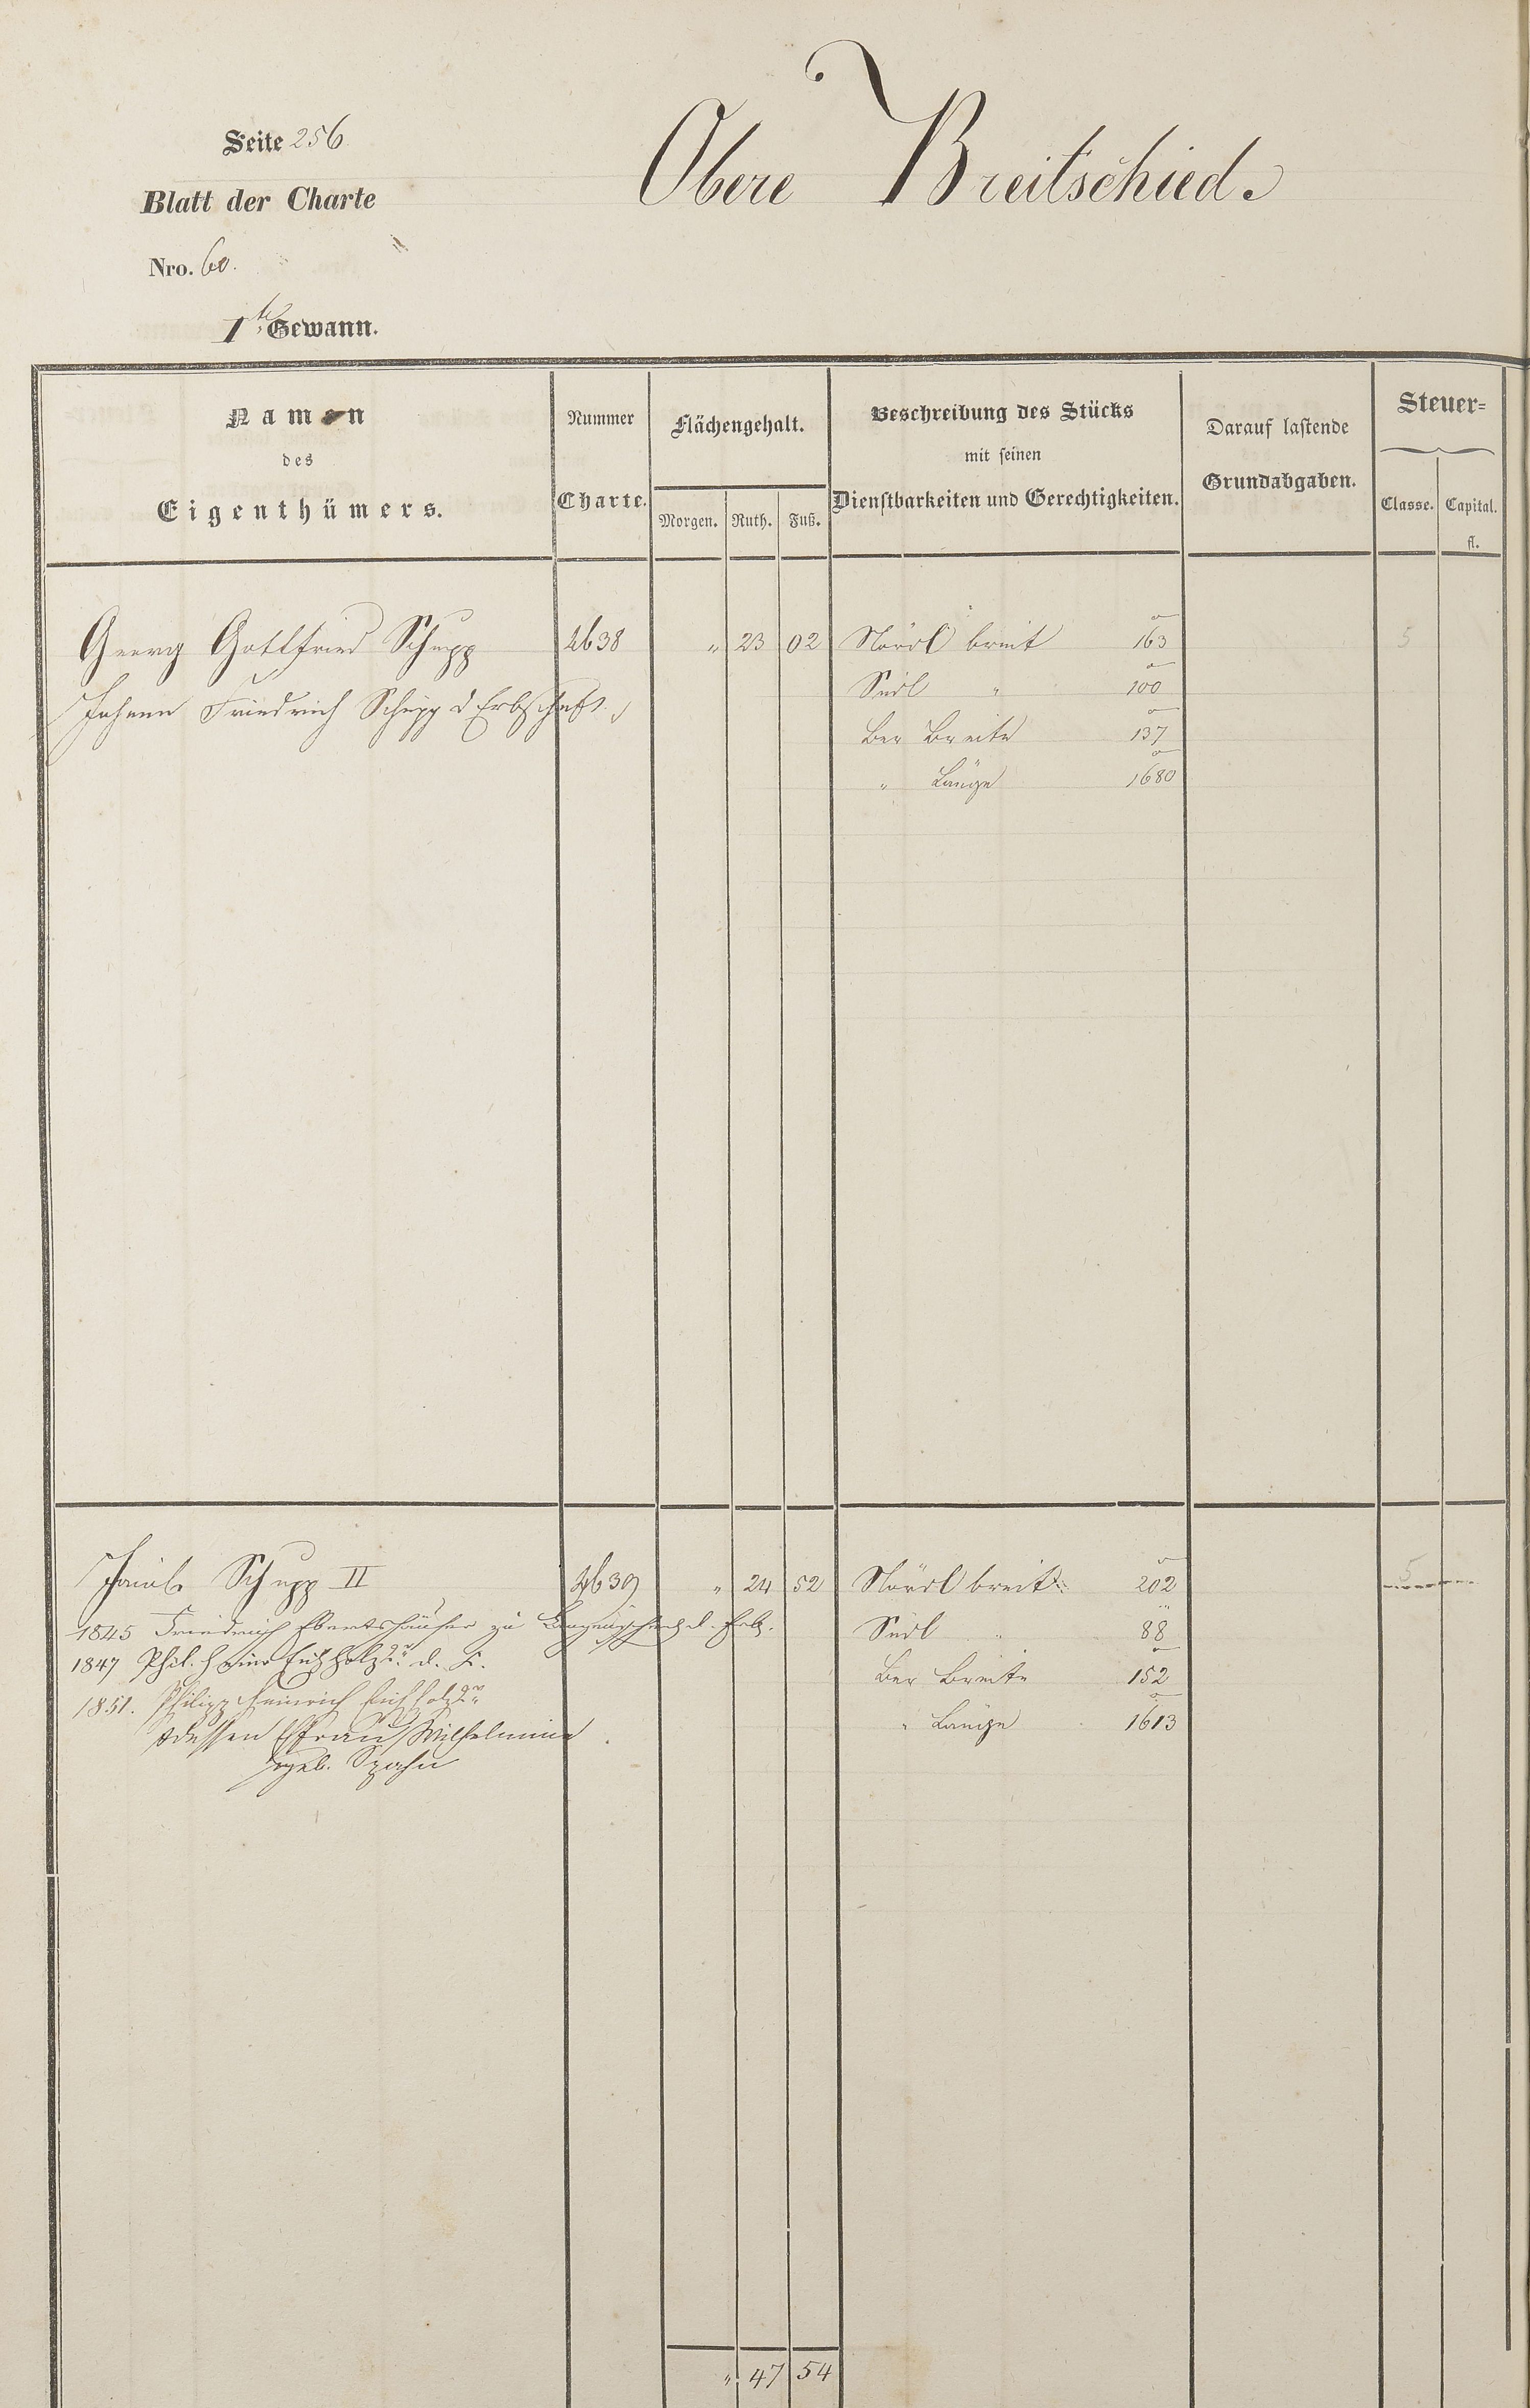 Seite 256
Obere Breitschied.
Blatt der Charte
Nro. 60.
1te Gewann.
Namen
des
Eigenthümers.
Nummer
Charte.
Flächengehalt.
Morgen. Ruth. Fuß.
Beschreibung des Stücks
mit seinen
Dienstbarkeiten und Gerechtigkeiten.
Darauf lastende
Grundabgaben.
Steuer=
Classe. Capital.
fl.
Georg Gottfried Schupp 4638 " 23 02 Nördl breit 163 5
Südl " 100
Johann Friedrich Schupp d Erbschaft.
Ber Breite 137
" Länge 1680
Jacob Schupp II 4639 " 24 52 Nördl breit 202 5
1845 Friedrich Ebertshäuser zu d. Erb. Südl " 88
1847 Phil. Heinr Eichholz 2r d. K.
Ber Breite 152
1851. Philipp Heinrich Eichholz 2r
" Länge 1613
dessen Efrau Wilhelmine
geb. Spahn
" 47 54